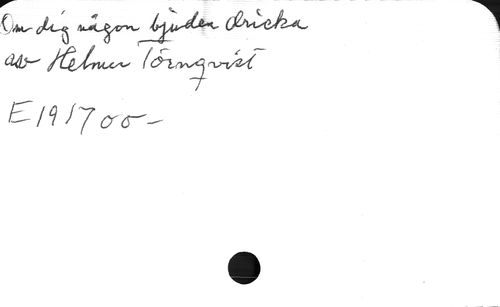 Om dig någon bjuden dricka
av Helmer Törnqvist
E 191700-